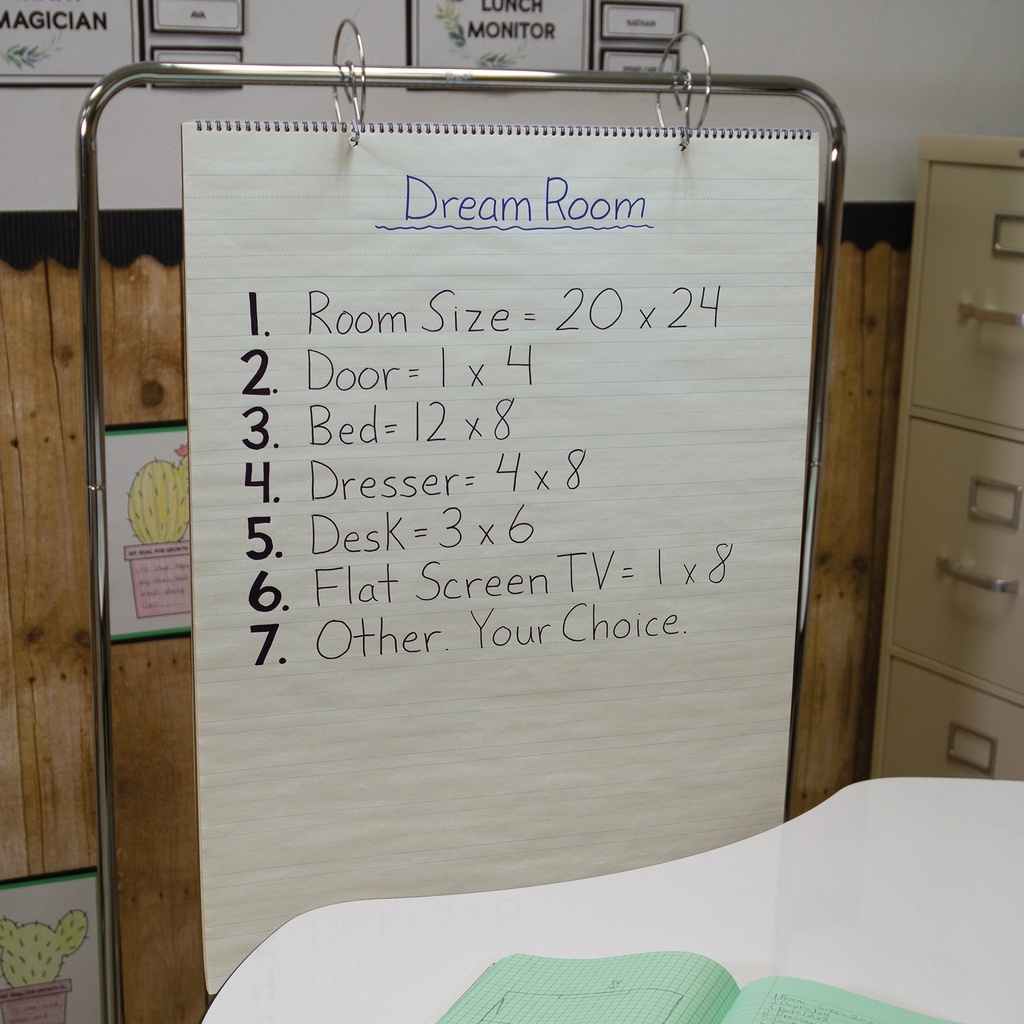 MAGICIAN
AVA
LUNCH
MONITOR
NATHAN
Dream Room
1. Room Size = 20 x 24
2. Door = 1 x 4
3. Bed = 12 x 8
4. Dresser = 4 x 8
5. Desk = 3 x 6
6. Flat Screen TV = 1 x 8
7. Other. Your Choice.
MY GOAL FOR GROWTH